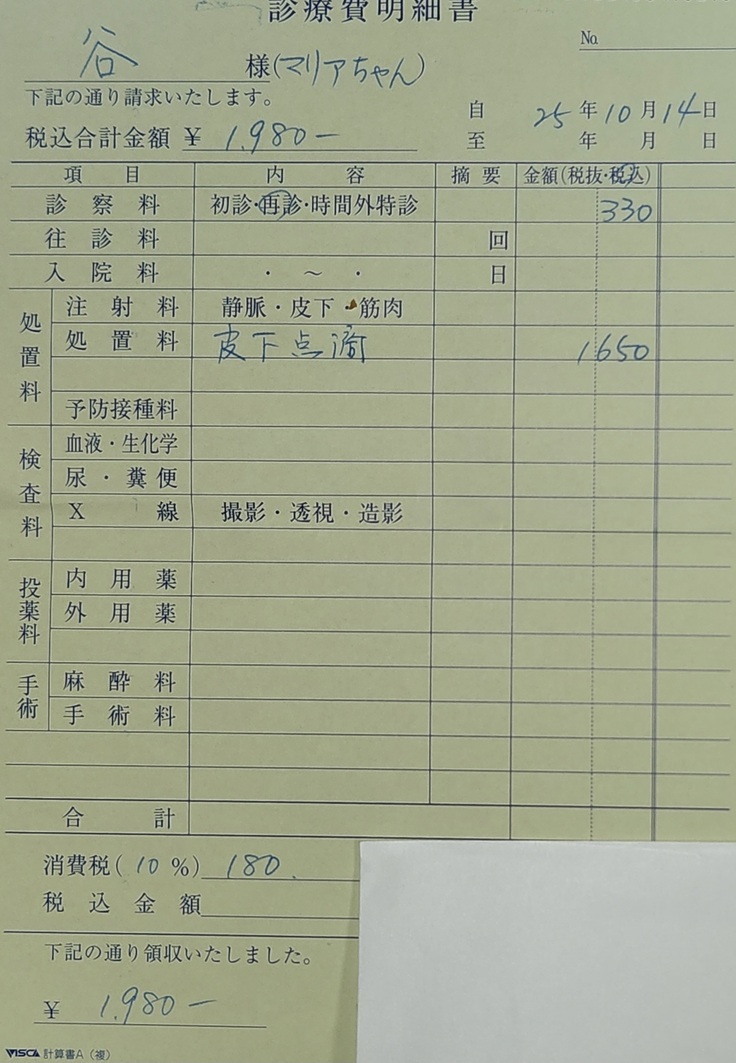 診療費明細書
No.
谷 様(マリアちゃん)
下記の通り請求いたします。
自 25年10月14日
税込合計金額 ¥ 1.980-
至 年 月 日
項目 内容 摘要 金額(税抜・税込)
診察料 初診・再診・時間外特診 330
往診料 回
入院料 ・ ～ ・ 日
処置料
注射料 静脈・皮下・筋肉
処置料 皮下点滴 1650
予防接種料
検査料
血液・生化学
尿・糞便
X線 撮影・透視・造影
投薬料
内用薬
外用薬
手術
麻酔料
手術料
合計
消費税(10%) 180.
税込金額
下記の通り領収いたしました。
¥ 1.980-
VISCA 計算書A(複)